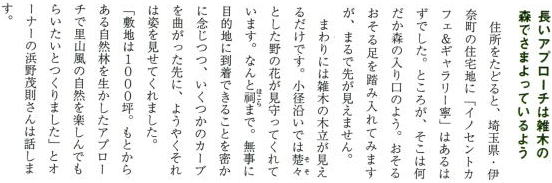 長いアプローチは雑木の
森でさまよっているよう
住所をたどると、埼玉県・伊
奈町の住宅地に「イノセントカ
フェ&ギャラリー寧」はあるは
ずでした。ところが、そこは何
だか森の入り口のよう。おそる
おそる足を踏み入れてみます
が、まるで先が見えません。
まわりには雑木の木立が見え
るだけです。小径沿いでは楚々
そ
とした野の花が見守ってくれて
います。なんと祠まで。無事に
ほこら
目的地に到着できることを密か
に念じつつ、いくつかのカーブ
を曲がった先に、ようやくそれ
は姿を見せてくれました。
「敷地は1000坪。もとから
ある自然林を生かしたアプロー
チで里山風の自然を楽しんでも
らいたいとつくりました」とオ
ーナーの浜野茂則さんは話しま
す。